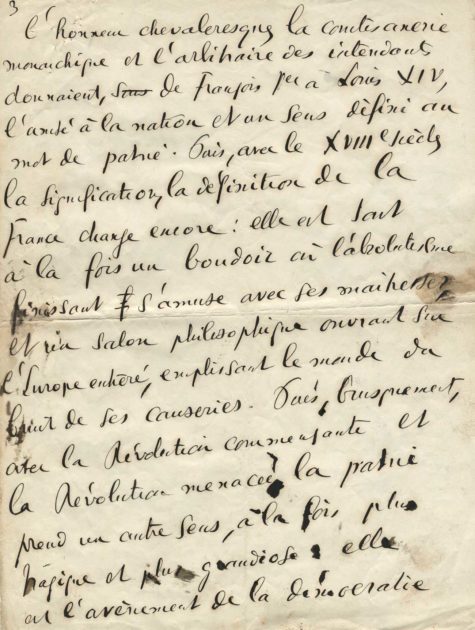 3
l'honneur chevaleresque, la courtisanerie
monarchique et l'arbitraire des intendants
donnaient, sous de François 1er à Louis XIV,
l'unité à la nation et un sens défini au
mot de patrie. Puis, avec le XVIIIe siècle
la signification, la définition de la
France change encore : elle est tout
à la fois un boudoir où l'absolutisme
finissant s'amuse avec ses maîtresses,
et un salon philosophique ouvrant sur
l'Europe entière, emplissant le monde du
bruit de ses causeries. Puis, brusquement,
avec la Révolution commençante et
la Révolution menacée, la patrie
prend un autre sens, à la fois plus
tragique et plus grandiose : elle
est l'avènement de la démocratie